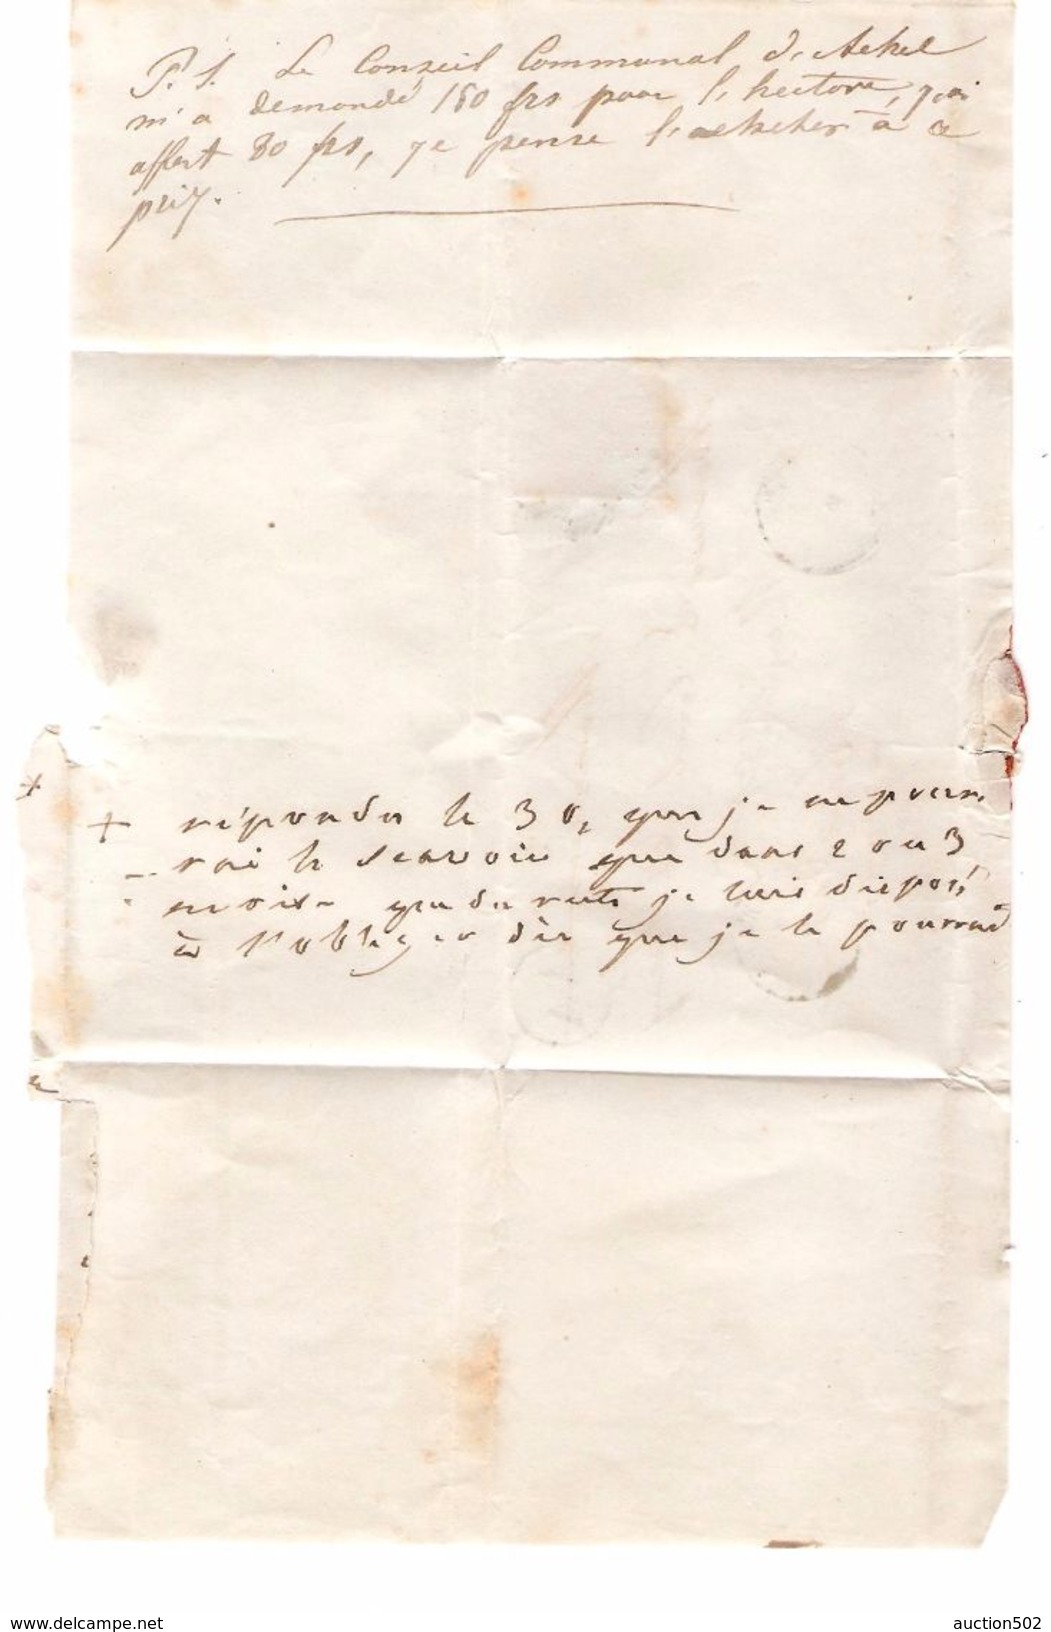 P.S. Le Conseil Communal d'Achel
m'a demandé 160 frs pour l'hectore, j'ai
offert 80 frs, je pense l'acheter à ce
prix.
+
+ répondu le 30, que je ne pour-
rai le scavoir que dans 2 ou 3
mois - que du reste je suis disposé
à l'obliger dès que je le pourrai
www.delcampe.net
auction502